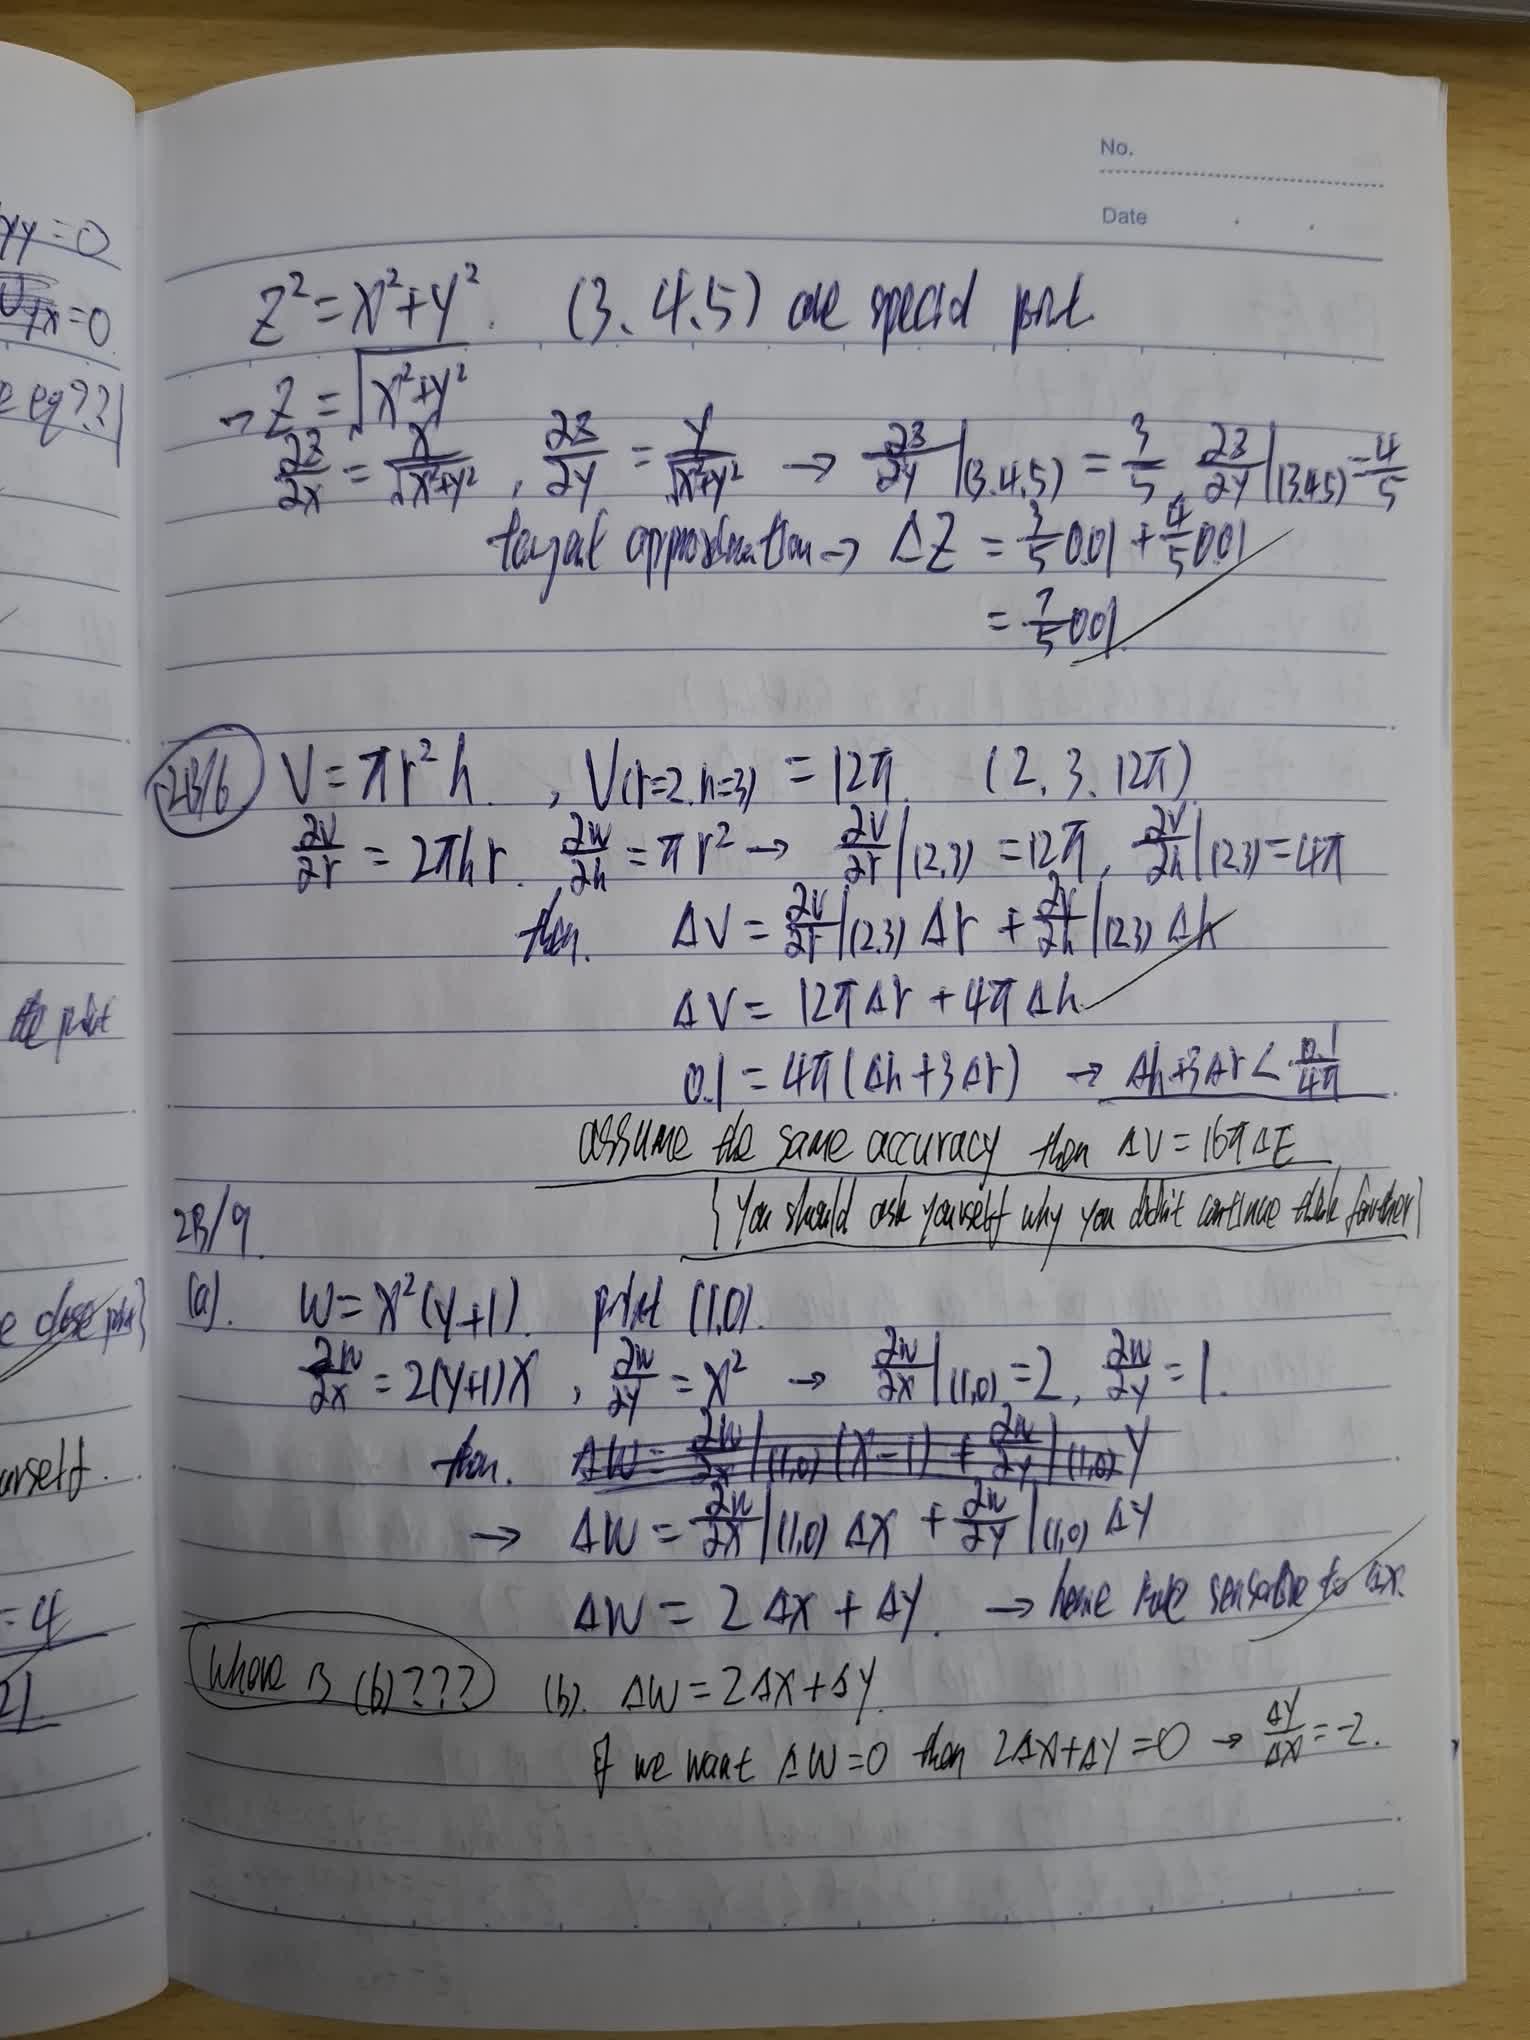 yy=0
yx=0
e eq??
the point
e close point}
urself.
=4
21
No.
Date
Z²=X²+Y². (3.4.5) one special point.
→ Z = √(X²+Y²)
∂z/∂x = x/√(x²+y²) , ∂z/∂y = y/√(x²+y²) → ∂z/∂y|(3.4.5) = 3/5 , ∂z/∂y|(3.4.5) = 4/5
tangent approximation → ΔZ = 3/5 0.01 + 4/5 0.01
= 7/5 0.01
2B/6 V = πr²h. , V(r=2.h=3) = 12π. (2.3.12π)
∂v/∂r = 2πhr. , ∂w/∂h = πr² → ∂v/∂r|(2,3) = 12π , ∂v/∂h|(2,3) = 4π
then. ΔV = ∂v/∂r|(2.3) Δr + ∂v/∂h|(2.3) Δh
ΔV = 12πΔr + 4πΔh
0.1 = 4π(Δh+3Δr) → Δh+3Δr < 0.1/4π
assume the same accuracy then ΔV = 16πΔE
{You should ask yourself why you didn't continue think further}
2B/9.
(a). W = X²(Y+1). point (1,0).
∂w/∂x = 2(y+1)X , ∂w/∂y = X² → ∂w/∂x|(1,0) = 2 , ∂w/∂y = 1.
then. ΔW = ∂w/∂x|(1,0) (X-1) + ∂w/∂y|(1,0) Y
→ ΔW = ∂w/∂x|(1,0) ΔX + ∂w/∂y|(1,0) ΔY
ΔW = 2ΔX + ΔY. → hence more sensitive to ΔX.
Where is (b)??? (b). ΔW = 2ΔX+ΔY.
If we want ΔW=0 then 2ΔX+ΔY=0 → ΔY/ΔX = -2.